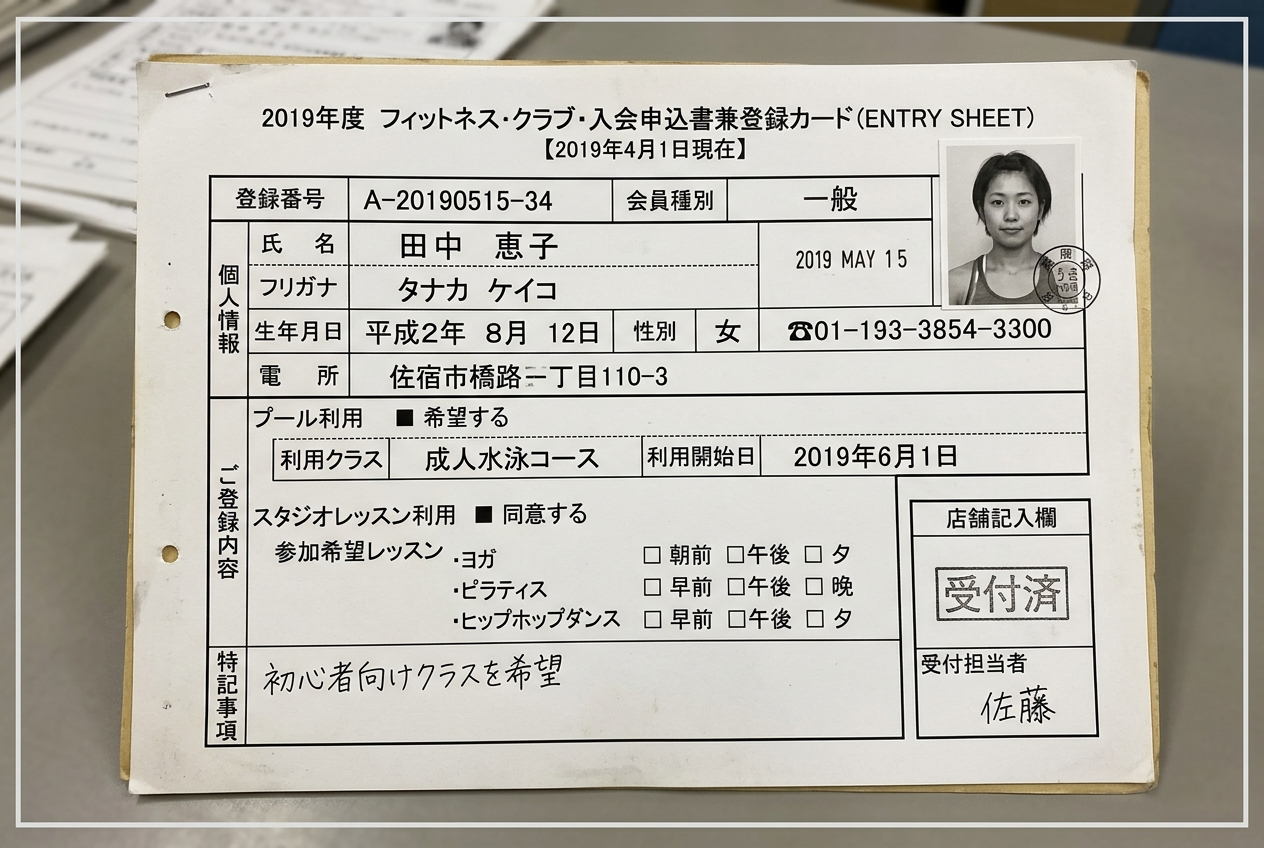 2019年度 フィットネス・クラブ・入会申込書兼登録カード(ENTRY SHEET)
【2019年4月1日現在】
登録番号 A-20190515-34 会員種別 一般
個人情報
氏 名 田中 恵子
2019 MAY 15
フリガナ タナカ ケイコ
生年月日 平成2年 8月 12日 性別 女 ☎01-193-3854-3300
電 所 佐宿市橋路 丁目110-3
ご登録内容
プール利用 ■ 希望する
利用クラス 成人水泳コース 利用開始日 2019年6月1日
スタジオレッスン利用 ■ 同意する
参加希望レッスン ・ヨガ □ 朝前 □午後 □ 夕
・ピラティス □ 早前 □午後 □ 晩
・ヒップホップダンス □ 早前 □午後 □ 夕
店舗記入欄
受付済
受付担当者
佐藤
特記事項
初心者向けクラスを希望